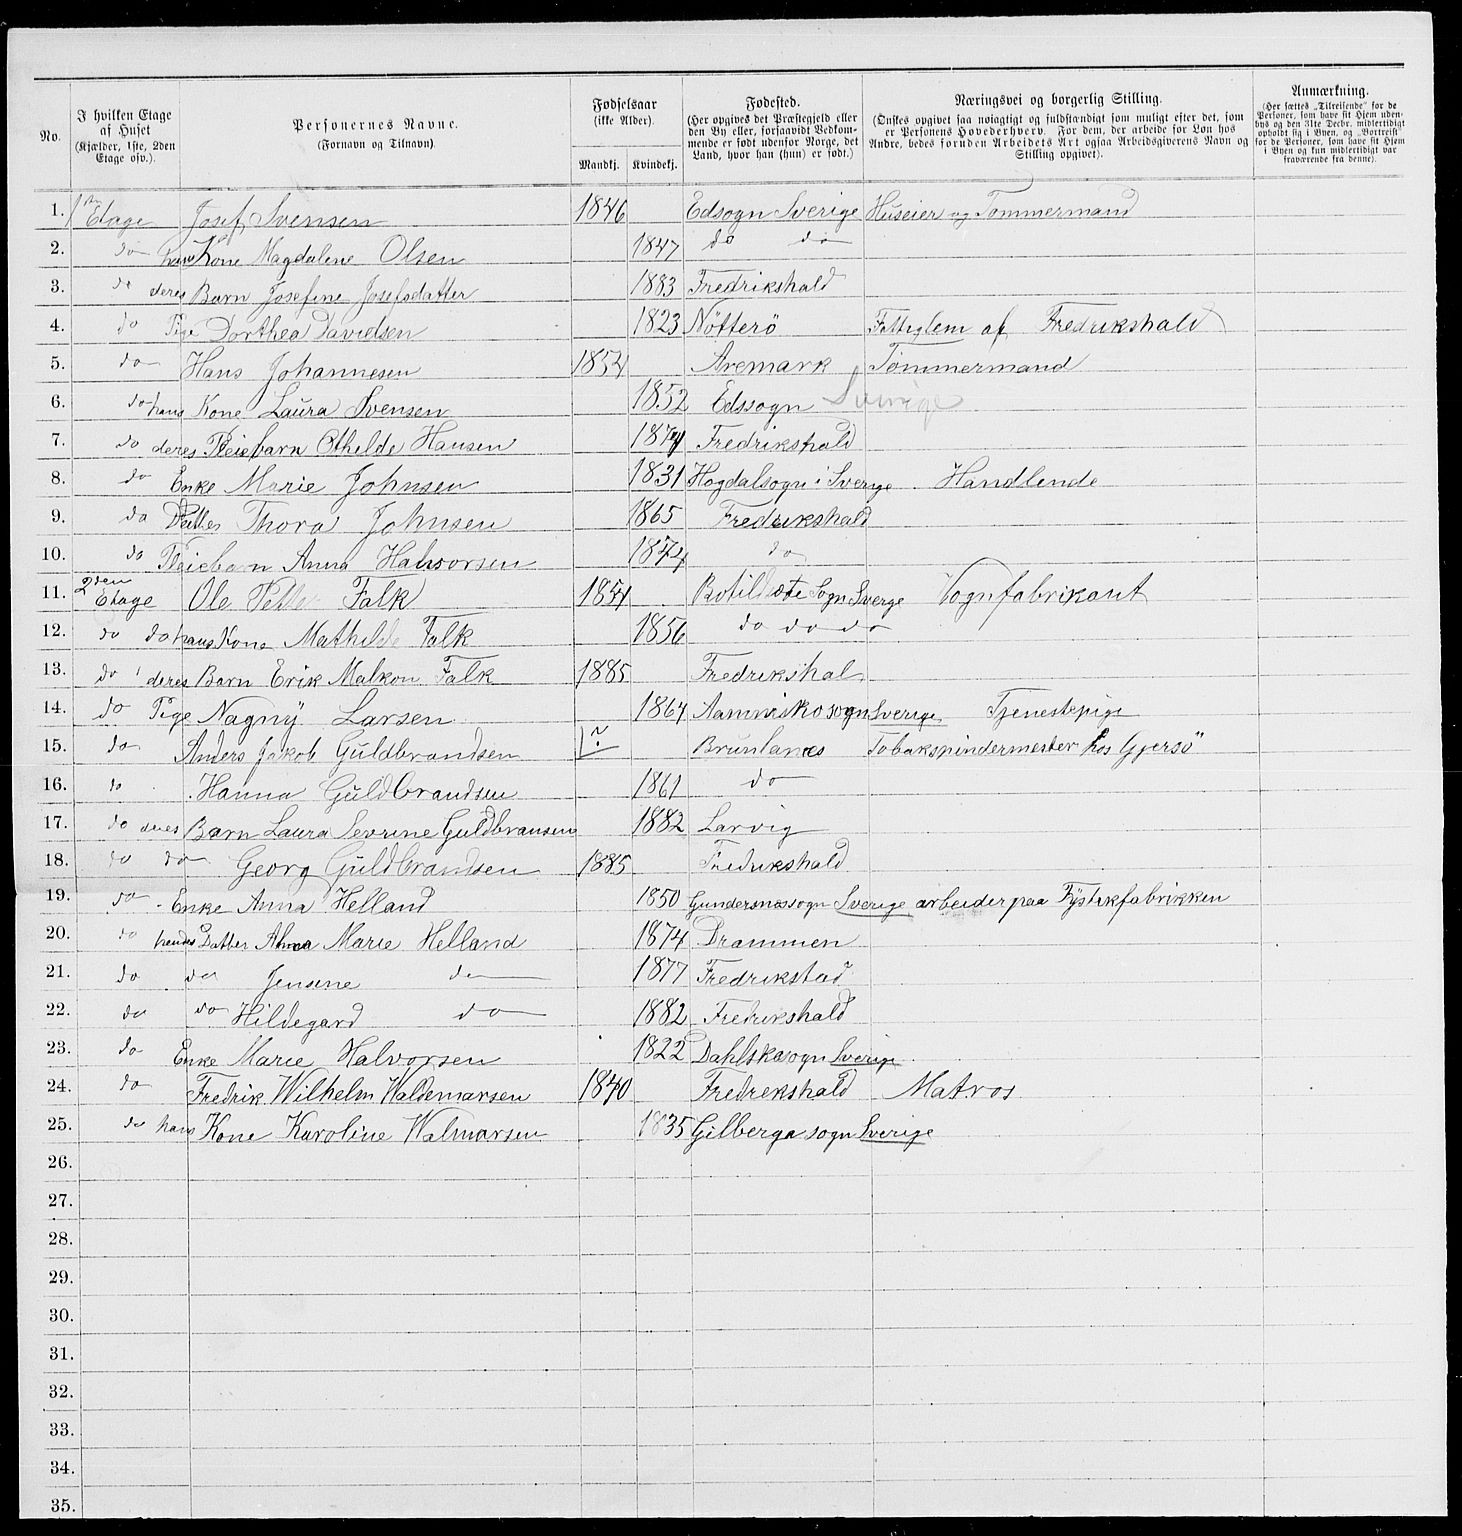 No.
I hvilken Etage af Huset (Kjælder, 1ste, 2den Etage osv.).
Personernes Navne. (Fornavn og Tilnavn).
Fødselsaar (ikke Alder). Mandkj. Kvindekj.
Fødested. (Her opgives det Præstegjeld eller den By eller, forsaavidt Vedkommende er født udenfor Norge, det Land, hvor han (hun) er født.)
Næringsvei og borgerlig Stilling. (Ønskes opgivet saa nøiagtigt og fuldstændigt som muligt efter det, som er Personens Hovederhverv. For dem, der arbeide for Løn hos Andre, bedes foruden Arbeidets Art ogsaa Arbeidsgiverens Navn og Stilling opgivet).
Anmærkning. (Her sættes „Tilreisende" for de Personer, som have sit Hjem udenbys og den 31te Decbr. midlertidigt opholdt sig i Byen, og „Bortreist" for de Personer, som have sit Hjem i Byen og kun midlertidigt var fraværende fra denne).
1. Etage Josef Svensen 1846 Edsogn Sverige Huseier og Tømmermand
2. do hans Kone Magdalene Olsen 1847 do do
3. do deres Barn Josefine Josefsdatter 1883 Fredrikshald
4. do Pige Dorthea Davidsen 1823 Nötterö Fattiglem af Fredrikshald
5. do Hans Johannesen 1854 Aremark Tømmermand
6. do hans Kone Laura Svensen 1852 Edssogn Sverige
7. do deres Pleiebarn Othelde Hansen Fredrikshald
8. do Enke Marie Johnsen 1831 Hogdalsogn i Sverige Handlende
9. do Datter Thora Johnsen 1865 Fredrikshald
10. do Pleiebarn Anna Halvorsen 1874 do
11. 2den Etage Ole Falk Sogn Sverge Vognfabrikant
12. do do hans Kone Mathilde Falk 1856 do do do
13. do deres Barn Erik Malkon Falk 1885 Fredrikshal
14. do Pige Nagny Larsen 1864 sogn Sverige Tjenestepige
15. do Anders Jakob Guldbrandsen Brunlanes Tobakspindermester hos Gjersö
16. do Hanna Guldbrandsen 1861 do
17. do deres Barn Laura Sevrine Guldbransen 1882 Larvig
18. do do Georg Guldbrandsen 1885 Fredrikshald
19. do Enke Anna Helland 1850 Gundersnæssogn Sverige arbeider paa Fÿstikfabrikken
20. do hendes Datter Alma Marie Helland 1874 Drammen
21. do do Jensine do 1877 Fredrikstad
22. do do Hildegard do 1882 Fredrikshald
23. do Enke Marie Halvorsen 1822 Dahlskasogn Sverige
24. do Fredrik Wilhelm Waldemarsen 1840 Fredrekshald Matros
25. do hans Kone Karoline Walmarsen 1835 Gilberga sogn Sverige
26.
27.
28.
29.
30.
31.
32.
33.
34.
35.